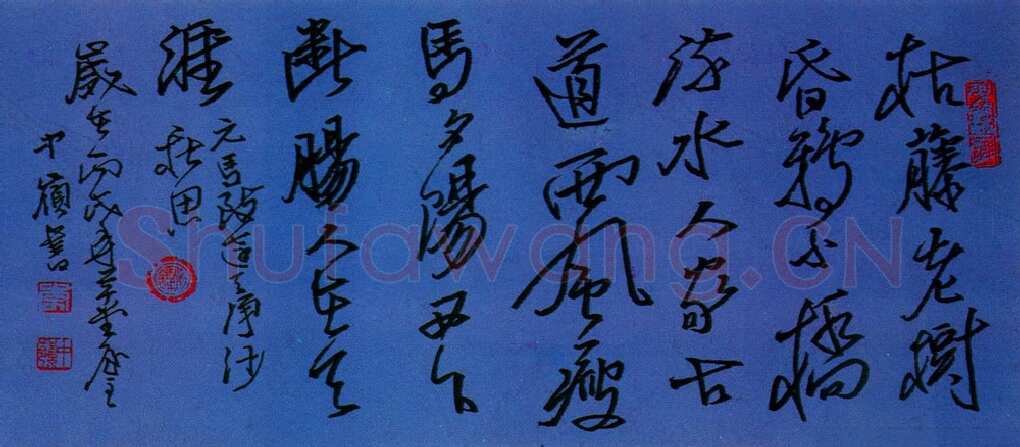 枯藤老樹
昏鴉小橋
流水人家古
道西風瘦
馬夕陽西下
斷腸人在天
涯
元馬致遠天淨沙
秋思
歲在丙戌年
中嶺書
Shufawang.CN